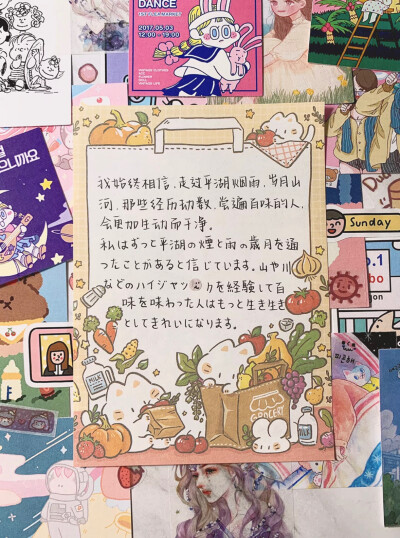 DANCE
2017.05.03
12:00 - 19:00
我始终相信,走过平湖烟雨,岁月山
河,那些经历劫数,尝遍百味的人,
会更加生动而干净。
私はずっと平湖の煙と雨の歳月を通
ったことがあると信じています。山や川
などのハイジャックを経験して百
味を味わった人はもっと生き生き
としてきれいになります。
MILK
CONCERY
Sunday
No.1